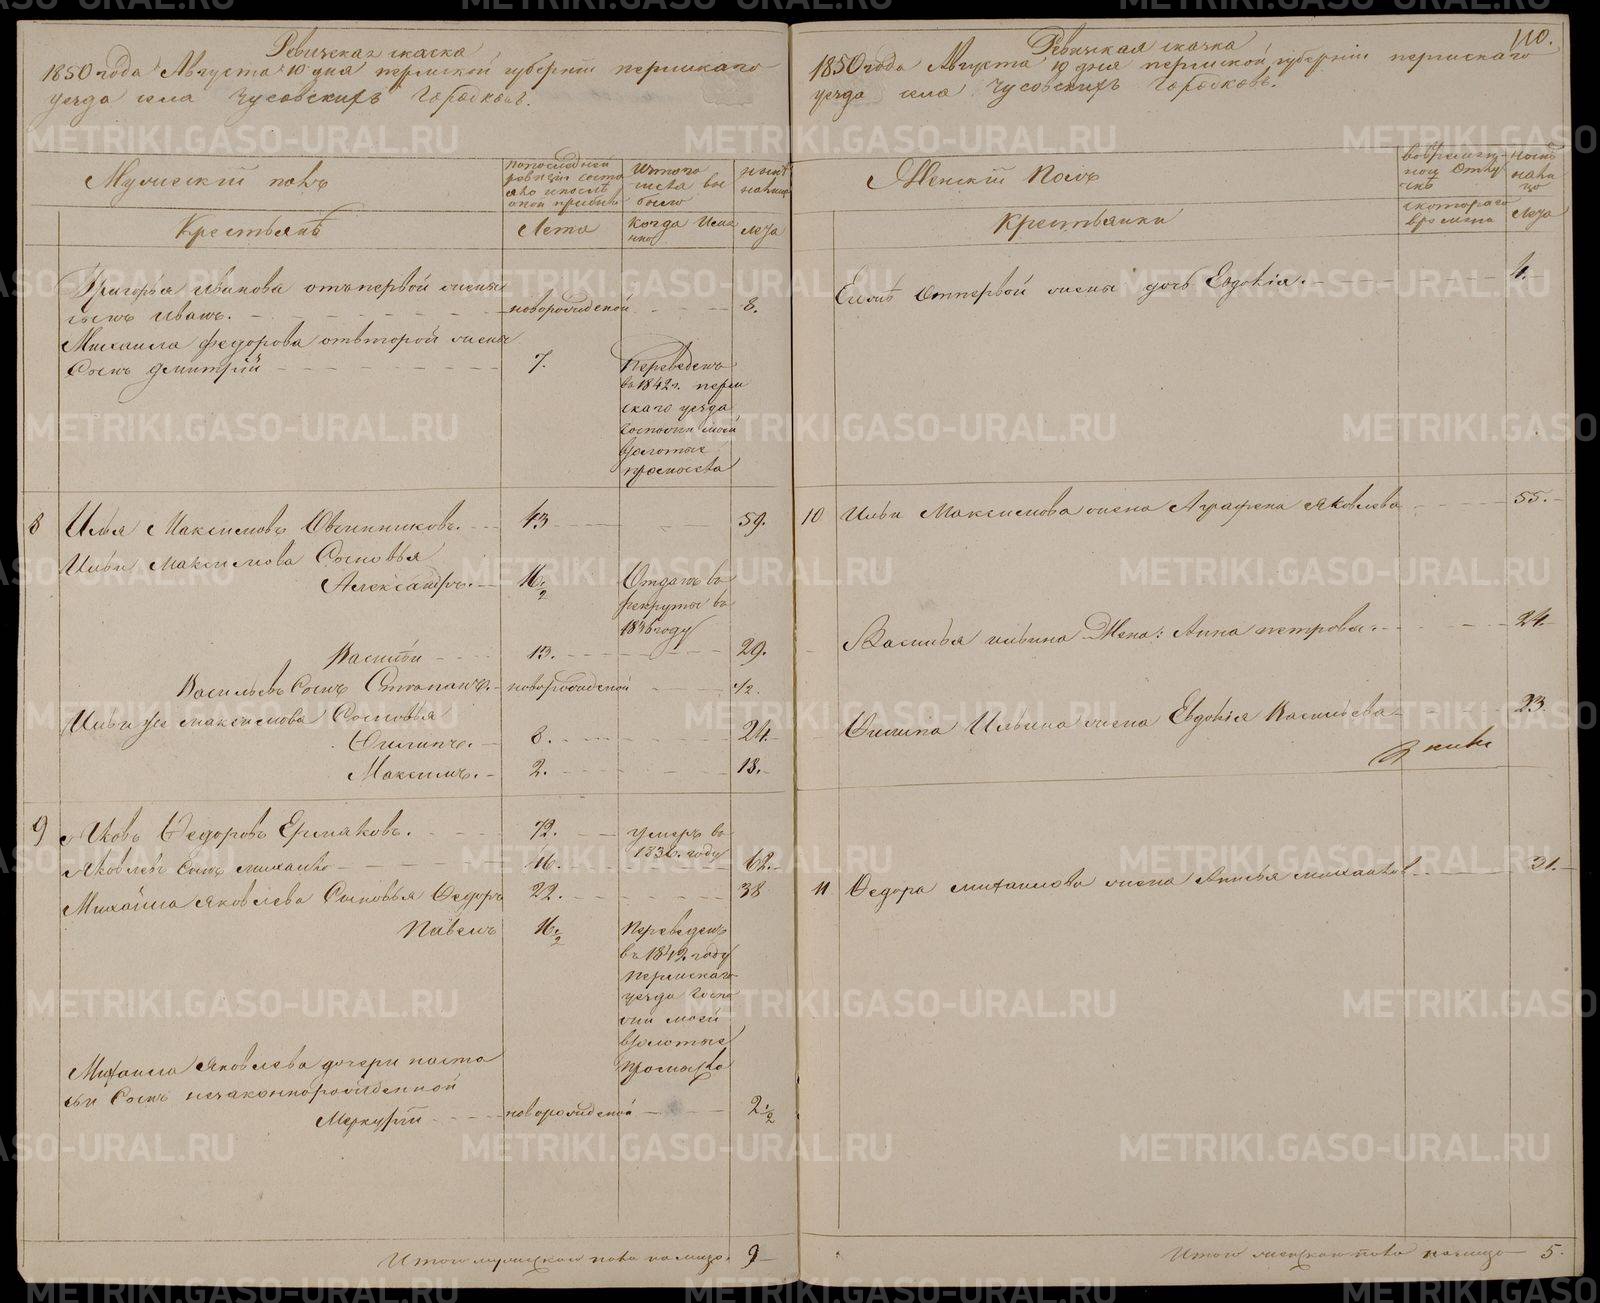 Ревижская скаска
1850 года Августа 10 дня пермской губернїи пермскаго
уезда села Чусовскихъ Городковъ.
Мужескїй полъ
по последней
ревизїи состо
яло и после
оной прибыло
Изтого
числа вы
было
ныне
налицо
Крестьянъ
Лета
Когда имян
но
лета
Григорья Иванова отъ первой жены
сынъ Иванъ.
новорожденой
8.
Михаила Федорова отвторой жены
Сынъ Дмитрїй
7.
Переведенъ
въ 1842 г. перм
скаго уезда
Госпожи моей
взолотые
промысла
8
Илья Максимовъ Овчинниковъ.
43
59.
Ильи Максимова Сыновья
Александръ.
16 1/2
Отданъ въ
рекруты въ
1836 году
Василїи
13.
29.
Васильевъ Сынъ Степанъ.
новорожденой
1/2.
Ильи же максимова Сыновья
Филипъ.
8.
24.
Максимъ.
2.
18.
9
Яковъ Федоровъ Ермаковъ.
72.
умеръ въ
1836. году
Яковлевъ Сынъ михаило
46.
62.
Михаила Яковлева Сыновья Федоръ
22.
38
Павелъ
16 1/2
Переведенъ
въ 1842. году
Пермскаго
уезда Госпо
жи моей
взолотые
промысла
Михаила Яковлева дочери наста
сьи Сынъ незаконнорожденной
Меркурїи
новорожденой
2 1/2
Итого мужескаго пола налицо.
9
110.
Ревижская скаска
1850 года Августа 10 дня пермской губернїи пермскаго
уезда села Чусовскихъ Городковъ.
Женскїй Полъ
во временной
отлу
чке
ныне
нали
цо
Крестьянки
скотораго
времяни
Лета
Его отпервой жены дочь Евдокїя.
4.
10
Ильи Максимова жена Аграфена Яковлева
55.
Василья ильина Жена: Анна петрова.
24.
Филипа Ильина жена Евдокїя Васильева
23.
11
Федора михаилова жена Анисья михаилов
31.
Итого женскаго пола налицо
5.
METRIKI.GASO-URAL.RU